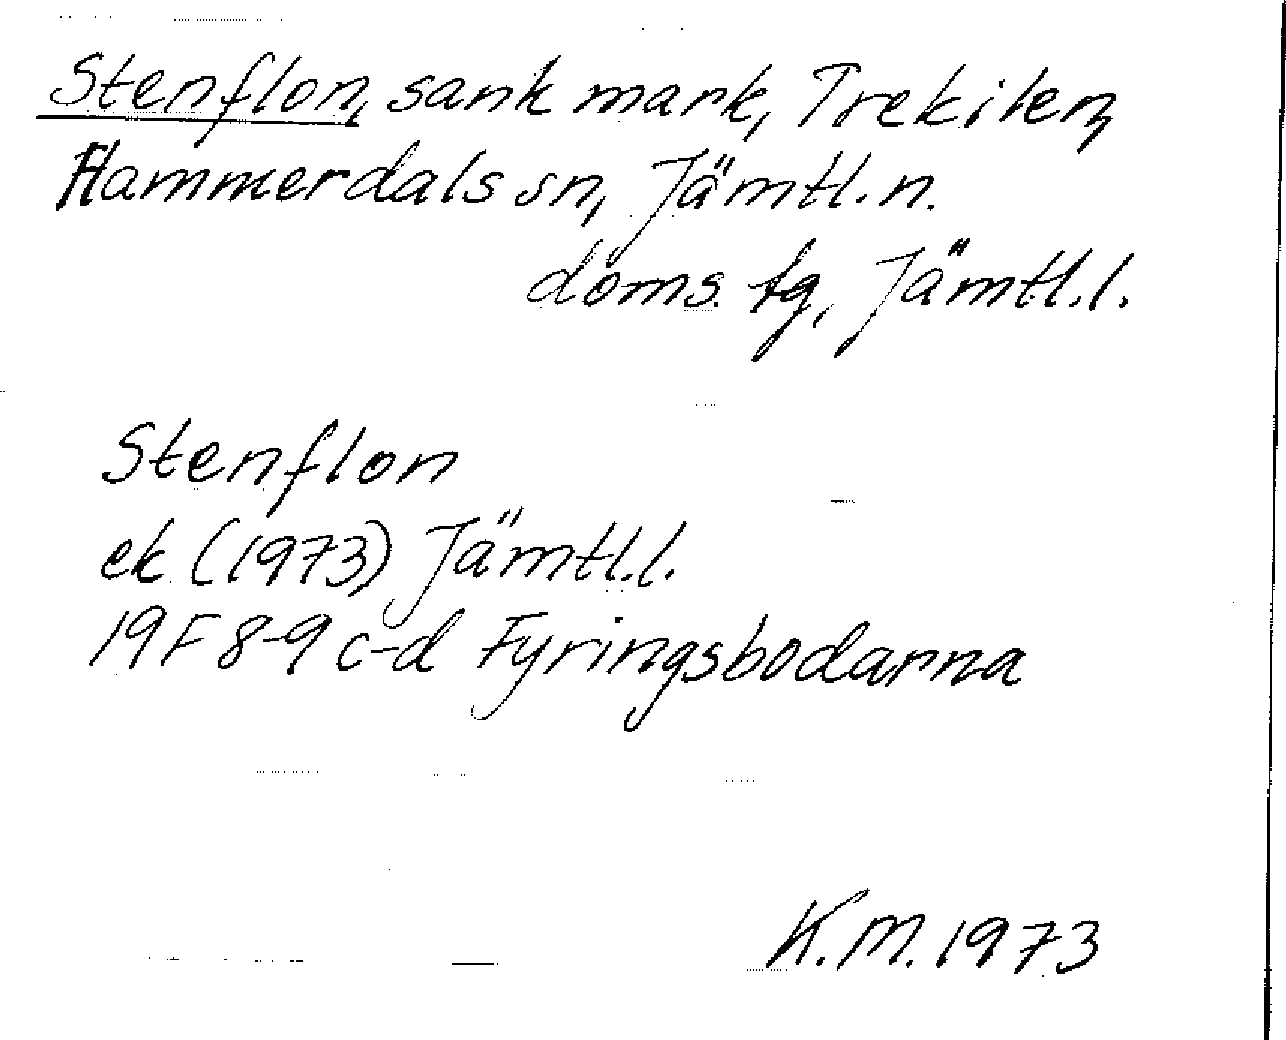 Stenflon, sank mark, Trekilen,
Hammerdals sn, Jämtl. n.
doms. tg, Jämtl. l.
Stenflon
ek (1973) Jämtl. l.
19F 8-9 c-d Fyringsbodarna
K.M. 1973